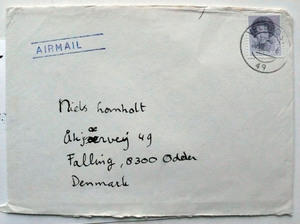 AIRMAIL
49
Niels Lomholt
Åkjærvej 49
Falling, 8300 Odder
Denmark